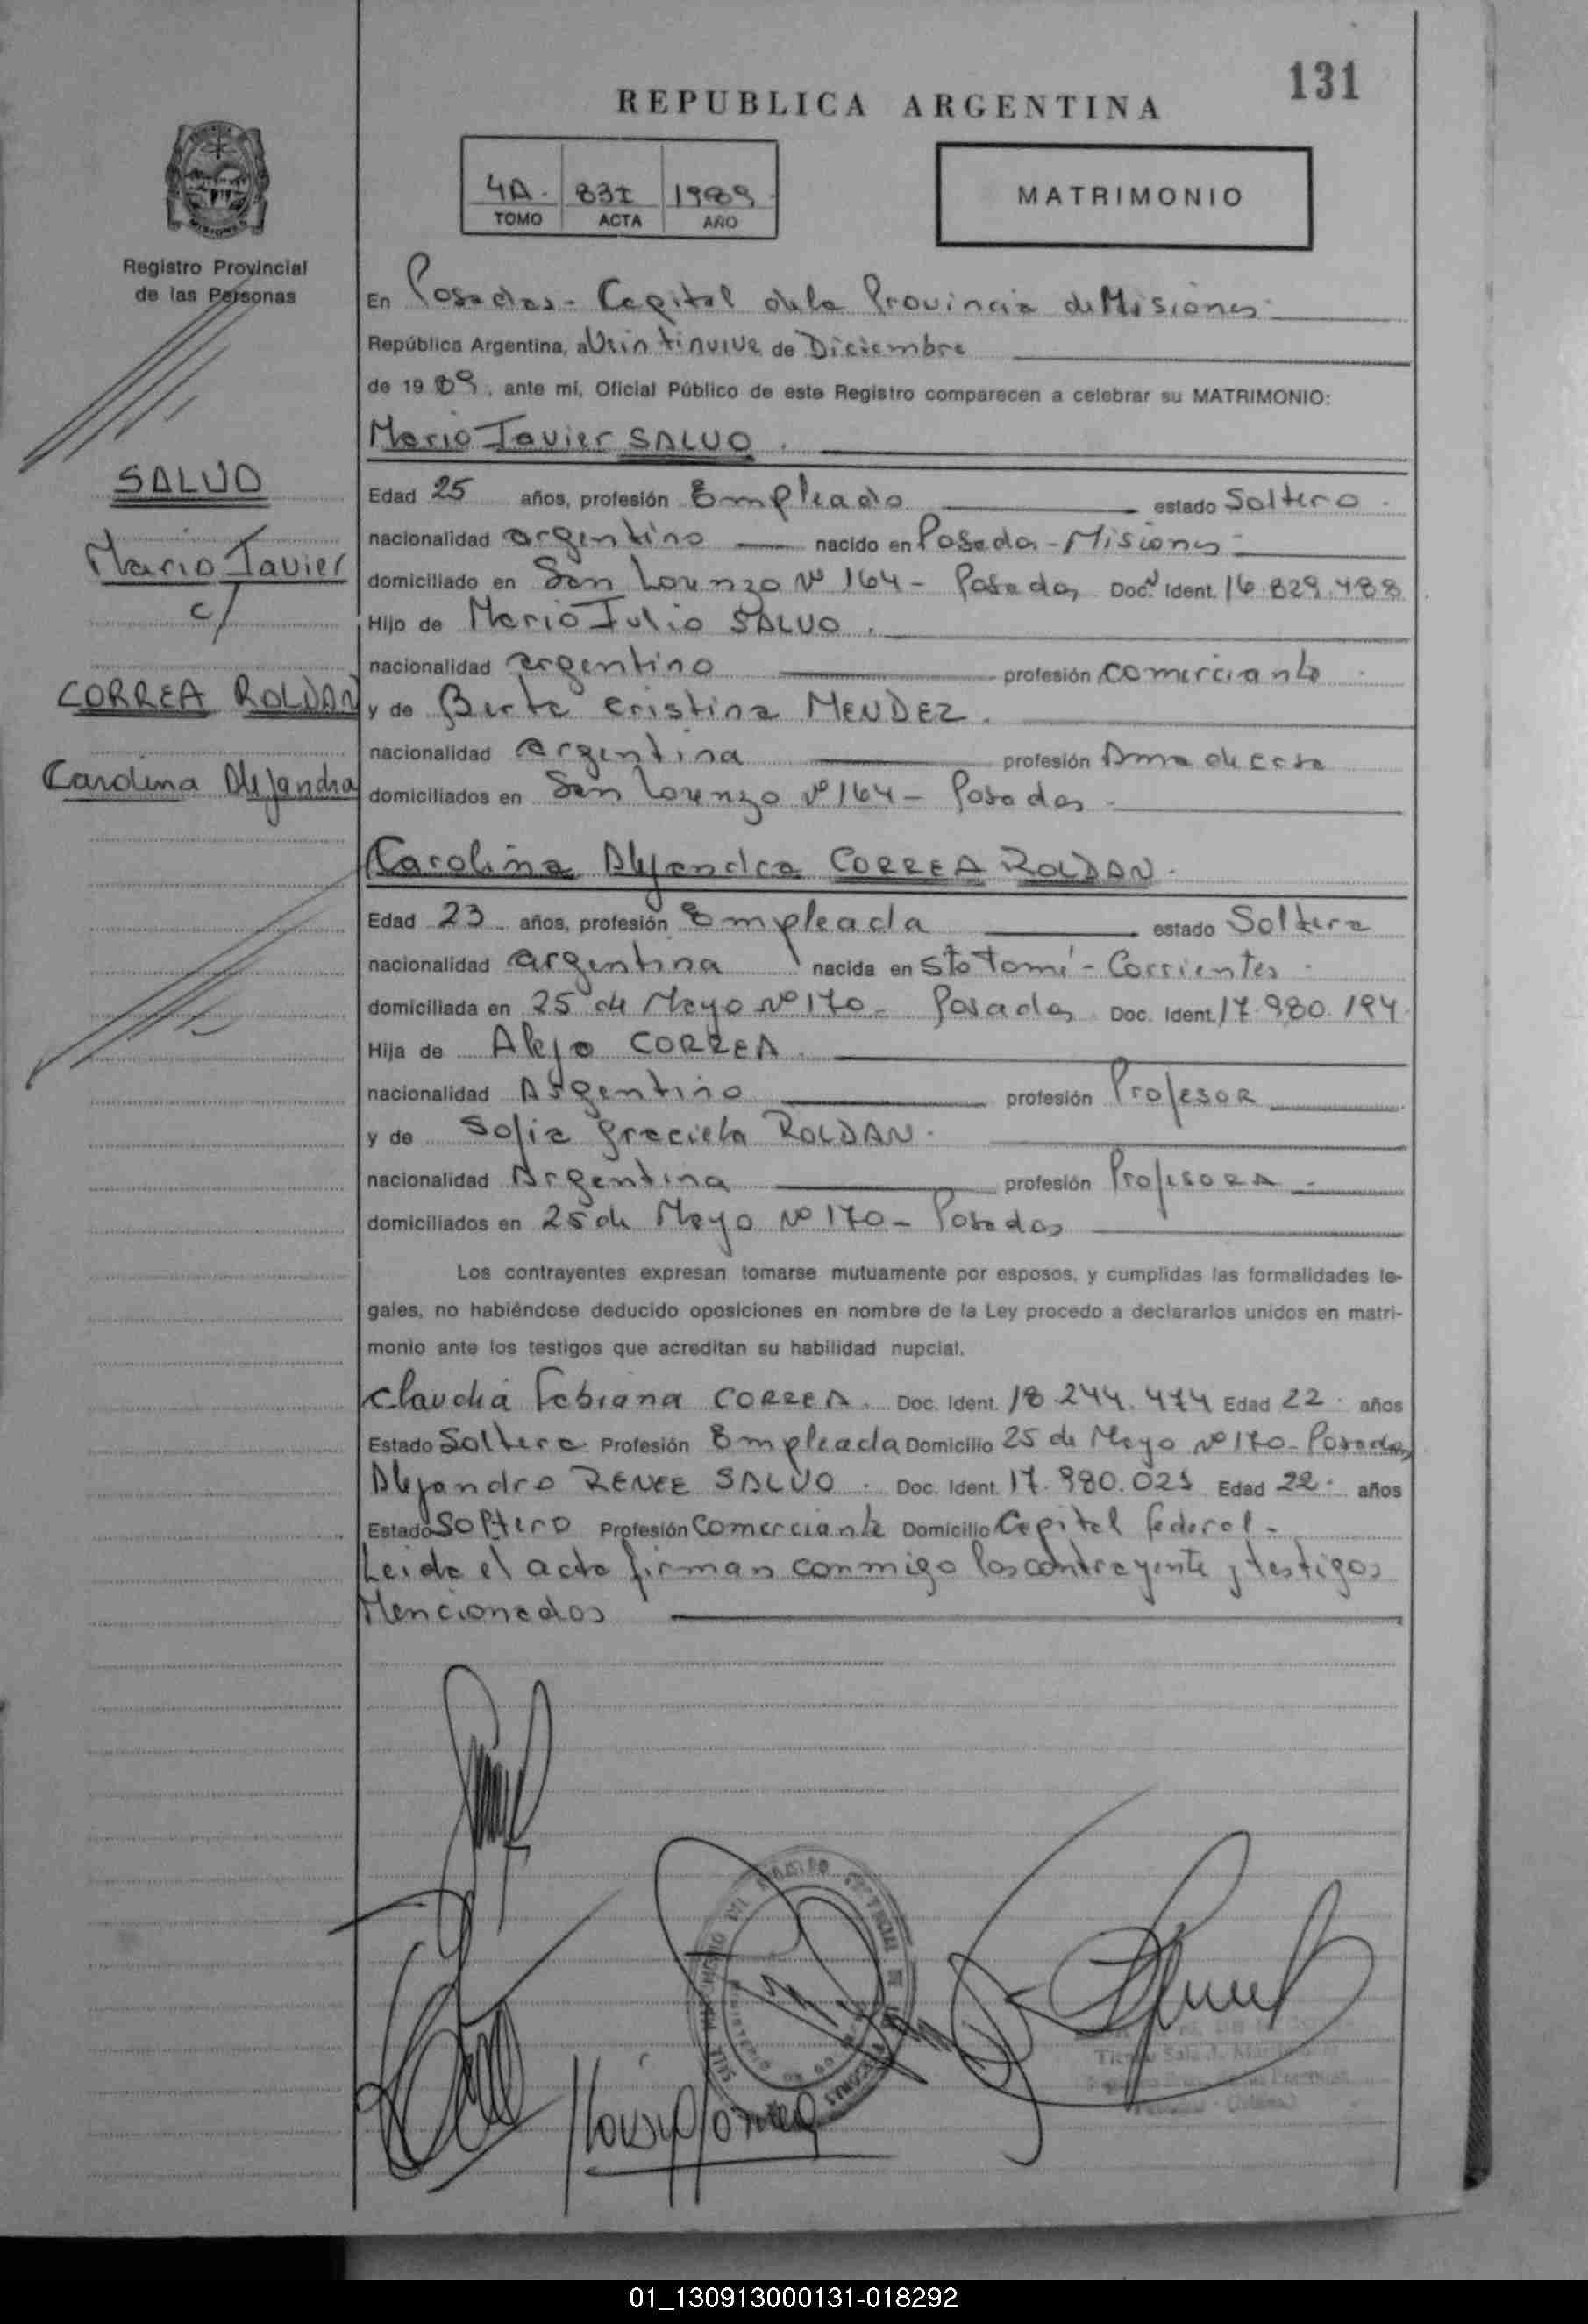 131
REPUBLICA ARGENTINA
4A. 831 1989
TOMO ACTA AÑO
MATRIMONIO
Registro Provincial
de las Personas
En Posadas - Capital de la Provincia de Misiones
República Argentina, a Veintinueve de Diciembre
de 1989, ante mí, Oficial Público de este Registro comparecen a celebrar su MATRIMONIO:
Mario Javier SALVO.
SALVO
Mario Javier
c/
CORREA ROLDAN
Carolina Alejandra
Edad 25 años, profesión Empleado estado Soltero.
nacionalidad argentino nacido en Posadas - Misiones
domiciliado en San Lorenzo Nº 164 - Posadas Doc. Ident. 16.829.488
Hijo de Mario Julio SALVO.
nacionalidad argentino profesión comerciante
y de Berta Cristina MENDEZ.
nacionalidad argentina profesión Ama de casa
domiciliados en San Lorenzo Nº 164 - Posadas
Carolina Alejandra CORREA ROLDAN.
Edad 23 años, profesión Empleada estado Soltera
nacionalidad argentina nacida en Sto Tomé - Corrientes
domiciliada en 25 de Mayo Nº 170 - Posadas Doc. Ident. 17.980.194
Hija de Alejo CORREA.
nacionalidad Argentino profesión Profesor
y de Sofia Graciela ROLDAN.
nacionalidad Argentina profesión Profesora
domiciliados en 25 de Mayo Nº 170 - Posadas
Los contrayentes expresan tomarse mutuamente por esposos, y cumplidas las formalidades le-
gales, no habiéndose deducido oposiciones en nombre de la Ley procedo a declararlos unidos en matri-
monio ante los testigos que acreditan su habilidad nupcial.
Claudia Fabiana CORREA. Doc. Ident. 18.244.474 Edad 22 años
Estado Soltera Profesión Empleada Domicilio 25 de Mayo Nº 170 - Posadas
Alejandro RENEE SALVO. Doc. Ident. 17.980.021 Edad 22 años
Estado Soltero Profesión Comerciante Domicilio Capital Federal -
Leida el acta firman conmigo los contrayente y testigos
Mencionados
01_130913000131-018292